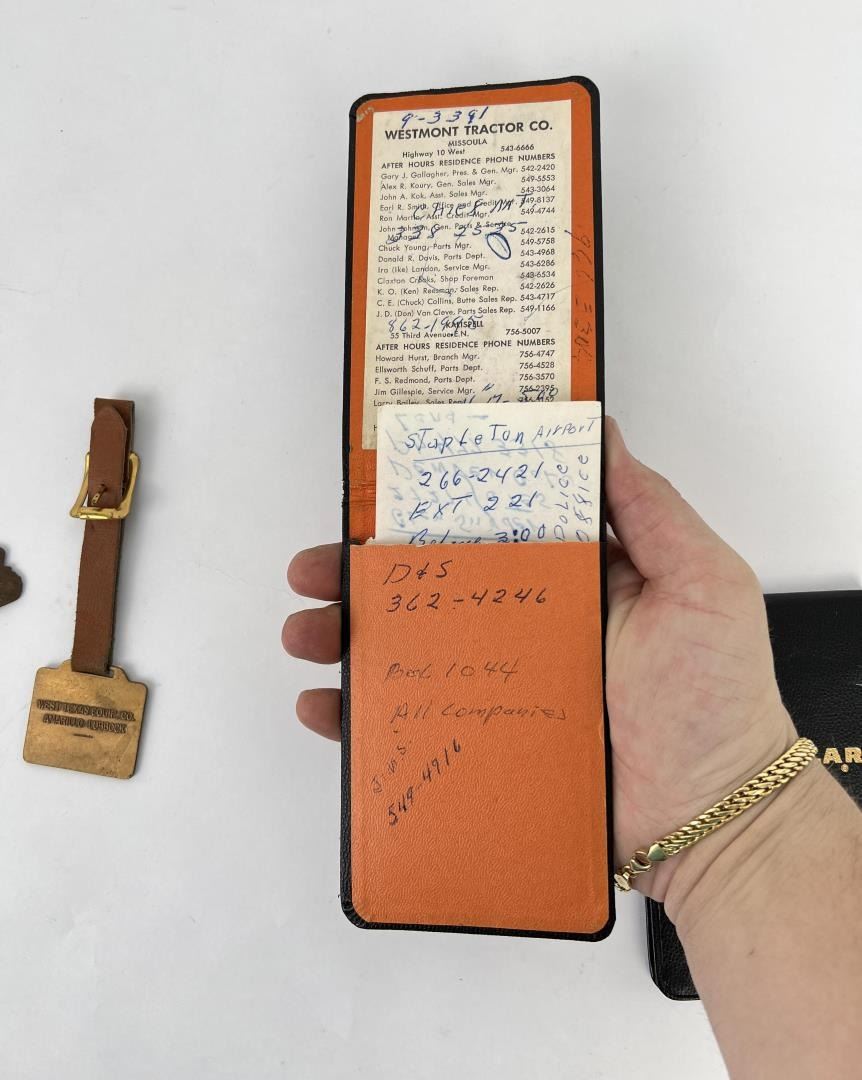 9-3391
WESTMONT TRACTOR CO.
MISSOULA
Highway 10 West 543-6666
AFTER HOURS RESIDENCE PHONE NUMBERS
Gary J. Gallagher, Pres. & Gen. Mgr. 542-2420
Alex R. Koury, Gen. Sales Mgr. 549-5553
John A. Kok, Asst. Sales Mgr. 543-3064
Earl R. Smith, Office and Credit Mgr. 549-8137
Ron Martin, Asst. Credit Mgr. 549-4744
John Johnson, Gen. Parts & Service
Manager 542-2615
338 2525
Chuck Young, Parts Mgr. 549-5758
Donald R. Davis, Parts Dept. 543-4968
Ira (Ike) Landon, Service Mgr. 543-6286
Claxton Crooks, Shop Foreman 543-6534
K. O. (Ken) Reisman, Sales Rep. 542-2626
C. E. (Chuck) Collins, Butte Sales Rep. 543-4717
J. D. (Don) Van Cleve, Parts Sales Rep. 549-1166
862-1995
KALISPELL
55 Third Avenue E.N. 756-5007
AFTER HOURS RESIDENCE PHONE NUMBERS
Howard Hurst, Branch Mgr. 756-4747
Ellsworth Schuff, Parts Dept. 756-4528
F. S. Redmond, Parts Dept. 756-3570
Jim Gillespie, Service Mgr. 756-2395
Larry Bailey, Sales Rep.
Stapleton Airport
266-2421
EXT 221
Before 3:00
Police
office
D & S
362-4246
Box 1044
All companies
549-4916
WEST TEXAS EQUIP. CO.
AMARILLO-LUBBOCK
AR